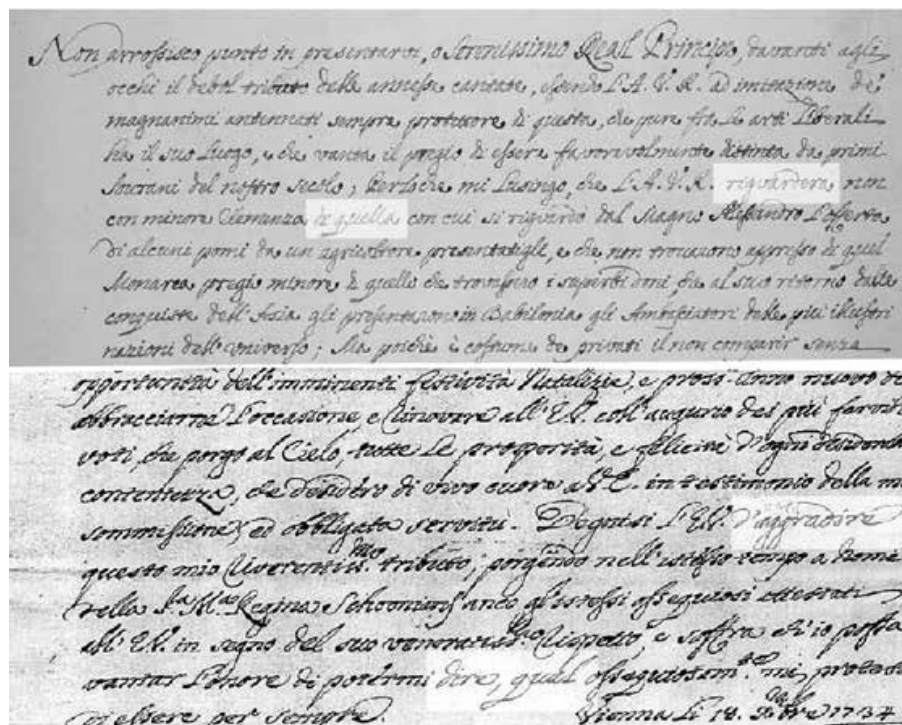 Non arrossisco punto in presentarvi, o Serenissimo Real Principe, davanti agli
occhi il debol tributo delle annesse cantate, essendo L'A. V. R. ad imitazione de'
magnanimi antennati sempre protettore di questa, che pure fra le arti Liberali
ha il suo Luogo, e che vanta il pregio di essere favorevolmente distinta da primi
Sovrani del nostro secolo; Perloche mi Lusingo, che L'A. V. R. riguarderà non
con minore Clemenza di quella con cui si riguardò dal Magno Alessandro L'offerta
di alcuni pomi da un agricoltore presentatigli, e che non trovarono appresso di quel
Monarca pregio minore di quello che trovassero i superbi doni, che al suo ritorno dalle
conquiste dell'Asia gli presentavono in Babilonia gli Ambasciatori delle più illustri
nazioni dell'Universo; Ma poichè è costume de privati il non comparir senza
opportunità dell'imminenti festività Natalizie, e pross. Anno nuovo
abbracciarne l'occasione, e rinovare all'E.V. coll'augurio dei più fervidi
voti, che porgo al Cielo, tutte Le prosperità, e felicità d'ogni
contentezza, che desidero di vivo cuore a V.E. in testimonio della
sommissione ed obbligata servitù. Degnisi L'E.V. d'aggradire
questo mio riverentis.mo tributo; porgendo nell'istesso tempo a nome
della Regina gl'istessi ossequiosi attestati
all'E.V. in segno del suo rispetto, e soffra ch'io possa
vantar l'onore di potermi dire, qual ossequiosam.te mi
di essere per sempre. Vienna Li 18. 1737